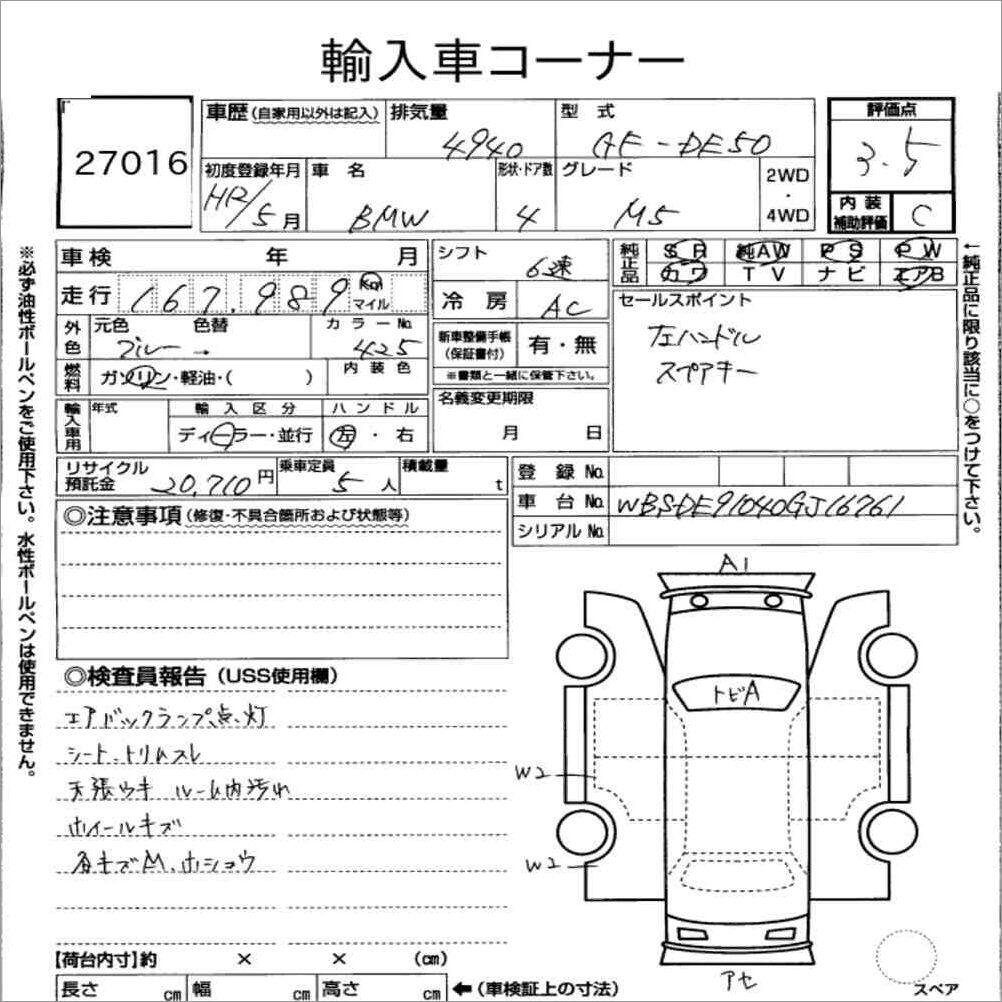 輸入車コーナー
27016
車歴(自家用以外は記入) 排気量 4940 型式 GF-DE50 評価点 3.5
初度登録年月 5月 車名 BMW 形状・ドア数 4 グレード M5 2WD・4WD 内装補助評価 C
車検 年 月
走行 167,989 Km マイル
外色 元色 ブルー 色替 → カラーNo. 425
燃料 ガソリン・軽油・( ) 内装色
輸入車用 年式 輸入区分 ディーラー・並行 ハンドル 左・右
シフト 6速
冷房 AC
新車整備手帳(保証書付) 有・無
※書類と一緒に保管下さい。
名義変更期限 月 日
純正品 SR 純AW PS PW
カワ TV ナビ エアB
セールスポイント
左ハンドル
スペアキー
リサイクル預託金 20,710円 乗車定員 5人 積載量 t
登録No.
車台No. WBSDE91040GJ16761
シリアルNo.
◎注意事項(修復・不具合箇所および状態等)
◎検査員報告(USS使用欄)
エアバックランプ点灯
シート、トリムスレ
天張ウキ ルーム内汚れ
ホイールキズ
各キズM、ホショウ
A1
トビA
W2
W2
アセ
スペア
【荷台内寸】約 × × (cm)
長さ cm 幅 cm 高さ cm ←(車検証上の寸法)
※必ず油性ボールペンをご使用下さい。水性ボールペンは使用できません。
←純正品に限り該当に○をつけて下さい。